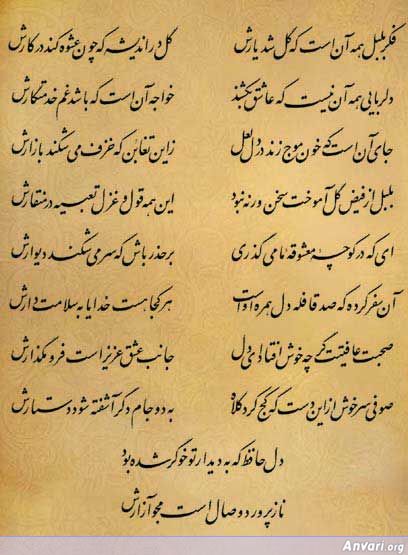 فکر بلبل همه آن است که گل شد یارش گل در اندیشه که چون عشوه کند در کارش
دلربایی همه آن نیست که عاشق بکشند خواجه آن است که باشد غم خدمتکارش
جای آن است که خون موج زند در دل لعل زاین تغابن که خزف می شکند بازارش
بلبل از فیض گل آموخت سخن ورنه نبود این همه قول و غزل تعبیه در منقارش
ای که در کوچه معشوقه ما می گذری بر حذر باش که سر می شکند دیوارش
آن سفر کرده که صد قافله دل همره اوست هر کجا هست خدایا به سلامت دارش
صحبت عافیتت گر چه خوش افتاد ای دل جانب عشق عزیز است فرو مگذارش
صوفی سرخوش از این دست که کج کرد کلاه به دو جام دگر آشفته شود دستارش
دل حافظ که به دیدار تو خوگر شده بود
ناز پرورد وصال است مجو آزارش
Anvari.org